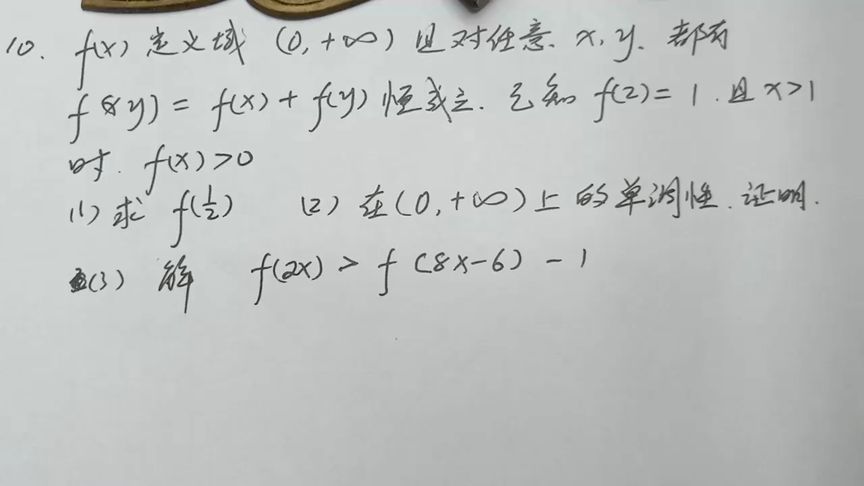 10. f(x) 定义域 (0,+∞) 且对任意、x,y、都有
f(xy) = f(x) + f(y) 恒成立. 已知 f(2) = 1 .且 x>1
时. f(x) > 0
(1) 求 f(1/2) (2) 在(0,+∞)上的单调性.证明.
(3) 解 f(2x) > f(8x-6) - 1